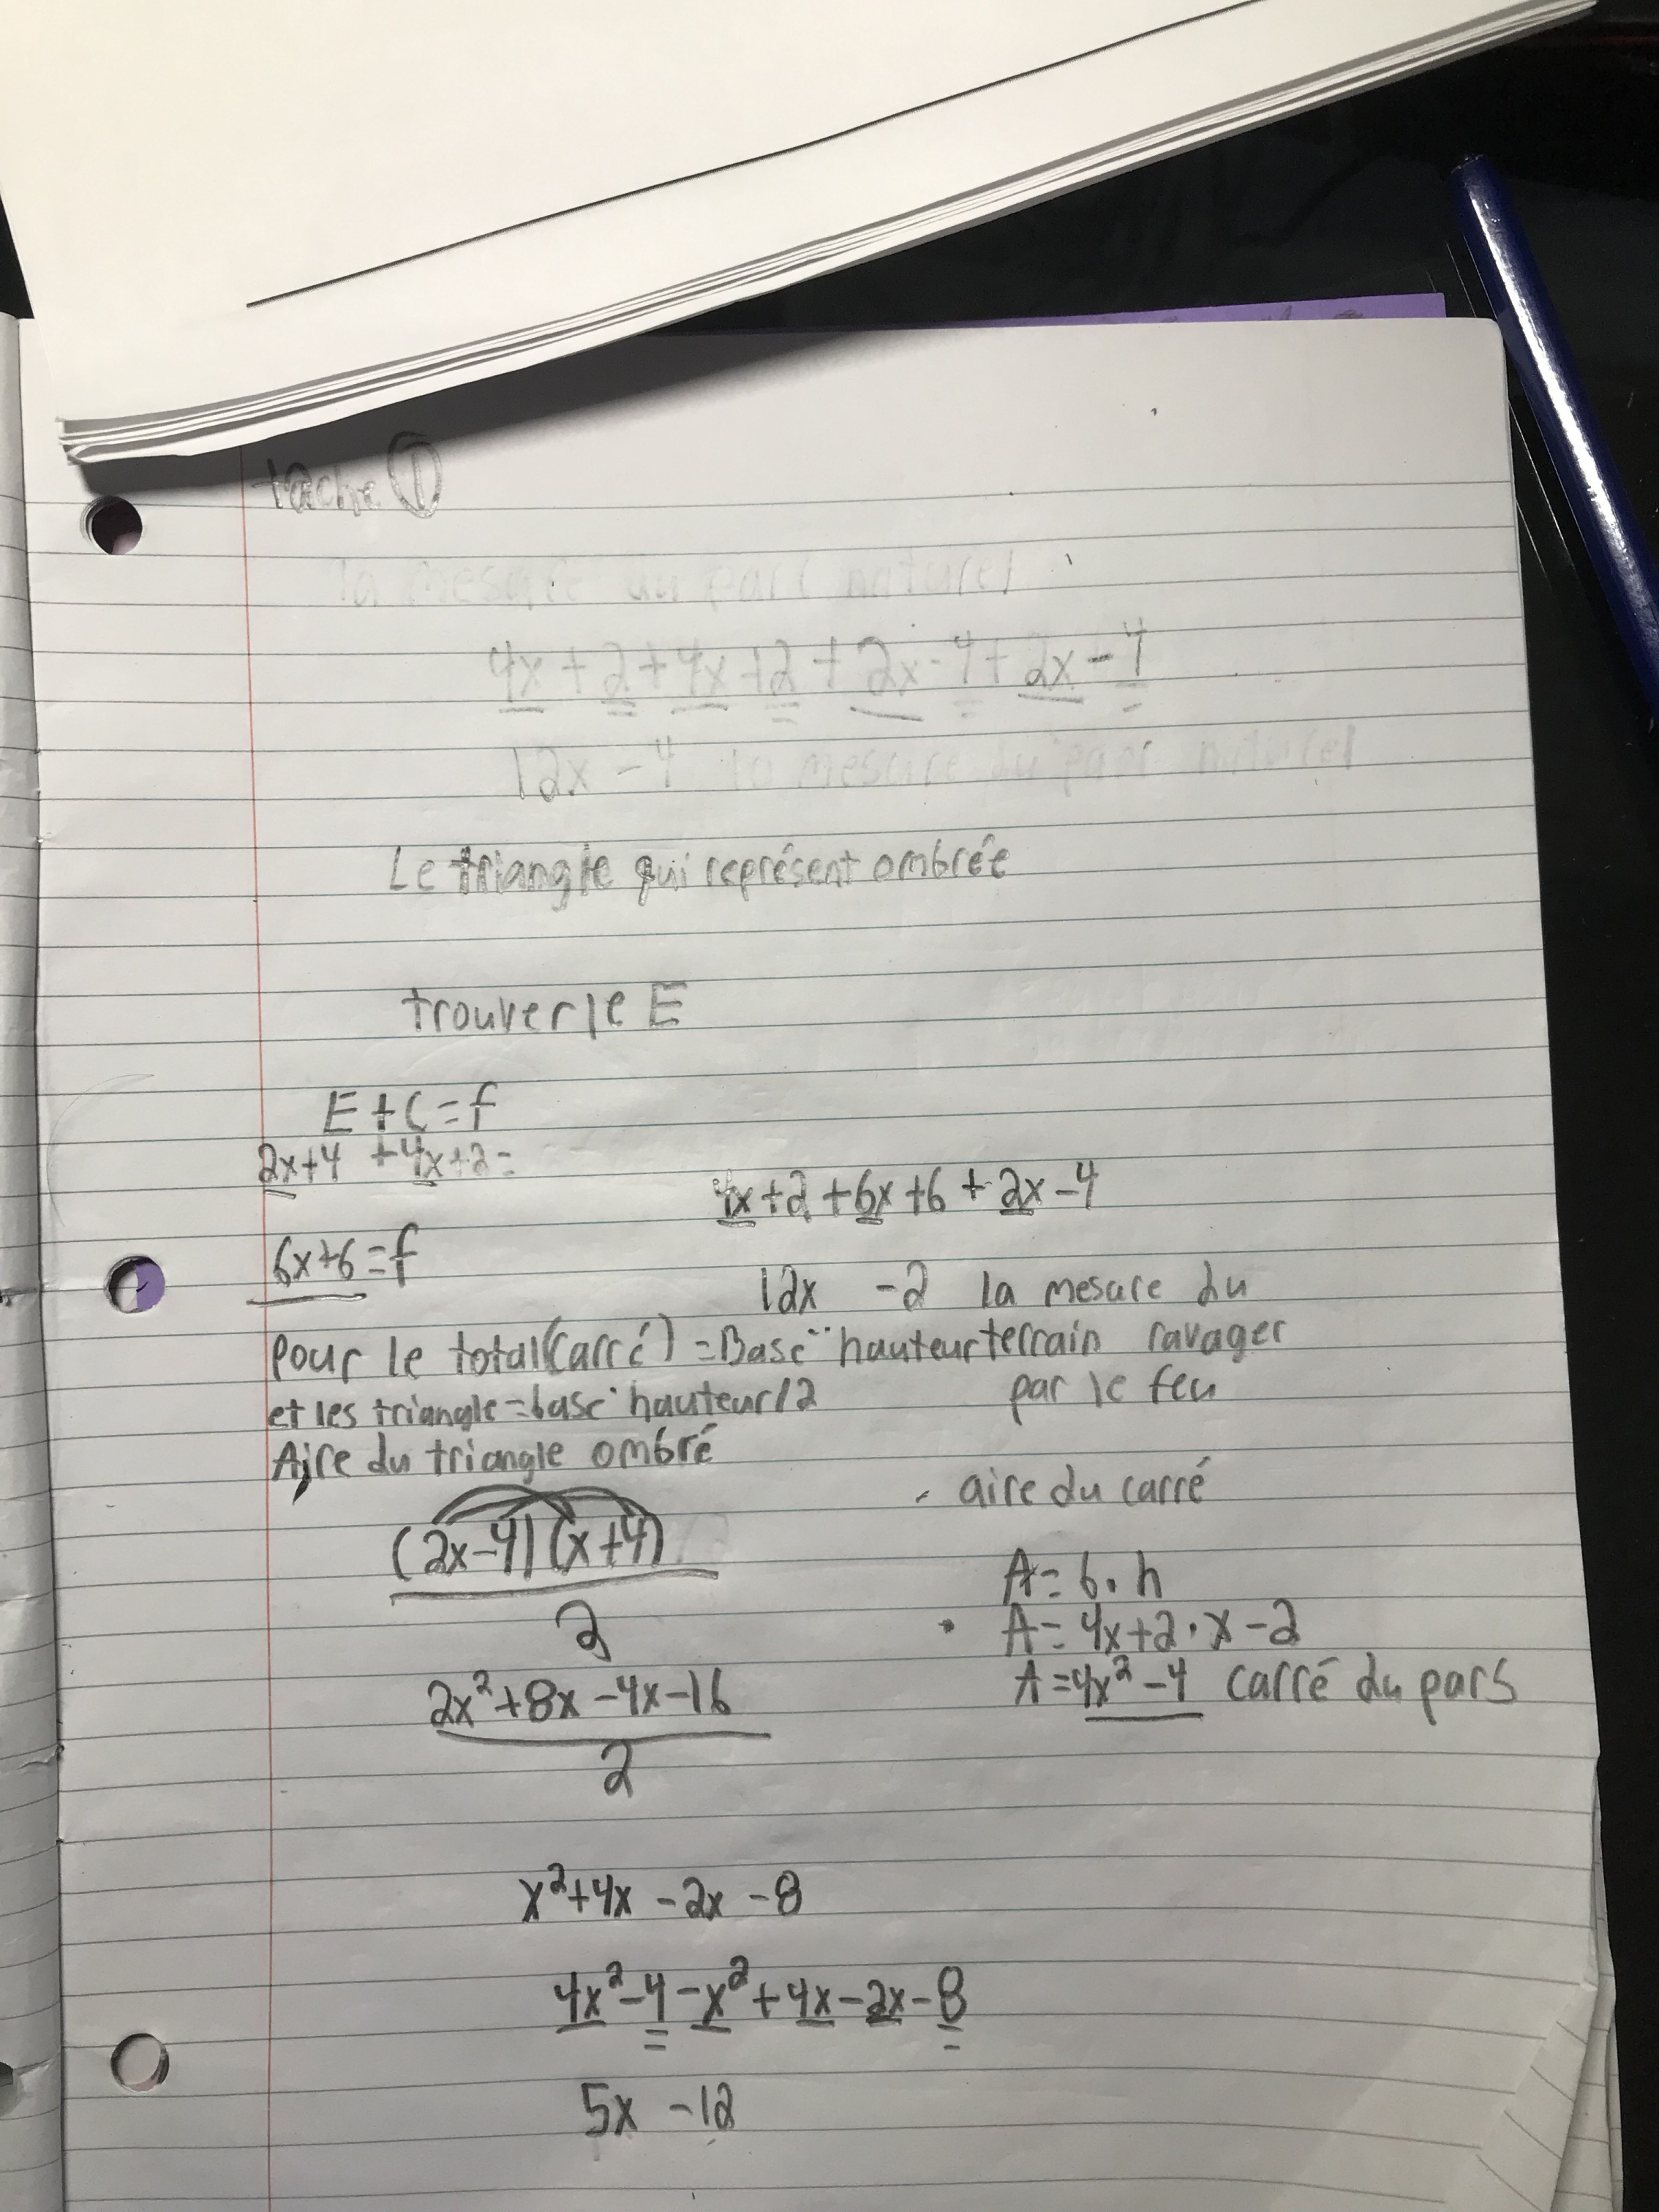 tache ①
la mesure du parc naturel
4x + 2 + 4x + 2 + 2x - 4 + 2x - 4
12x - 4 la mesure du parc naturel
Le triangle qui représent ombrée
trouver le E
E + C = f
2x+4 + 4x+2 =
4x + 2 + 6x + 6 + 2x - 4
6x+6 = f
12x - 2 la mesure du
pour le total(carré) = Base · hauteur terrain ravager
et les triangle = base · hauteur/2 par le feu
Aire du triangle ombré
aire du carré
(2x-4)(x+4)
2
A = b · h
A = 4x+2 · x-2
2x²+8x-4x-16
2
A = 4x²-4 carré du pars
x²+4x -2x -8
4x²-4-x²+4x-2x-8
5x -12